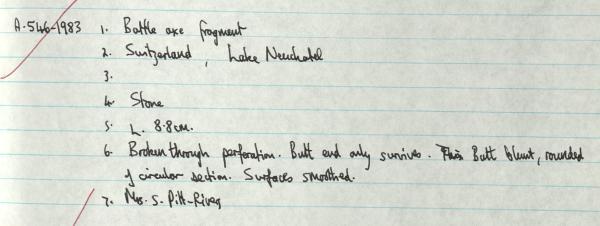 A.546-1983 1. Battle axe fragment
2. Switzerland, Lake Neuchatel
3.
4. Stone
5. L. 8.8cm.
6. Broken through perforation. Butt end only survives. Butt blunt, rounded
of circular section. Surfaces smoothed.
7. Mrs. S. Pitt-Rivers